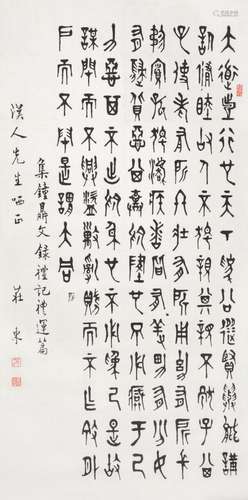 大道之行也天下為公選賢與能講
信修睦故人不獨親其親不獨子其
子使老有所終壯有所用幼有所長
矜寡孤獨廢疾者皆有所養男有分女
有歸貨惡其棄於地也不必藏於己
力惡其不出於身也不必為己是故
謀閉而不興盜竊亂賊而不作故外
戶而不閉是謂大同
集鐘鼎文錄禮記禮運篇
漢人先生哂正
莊東